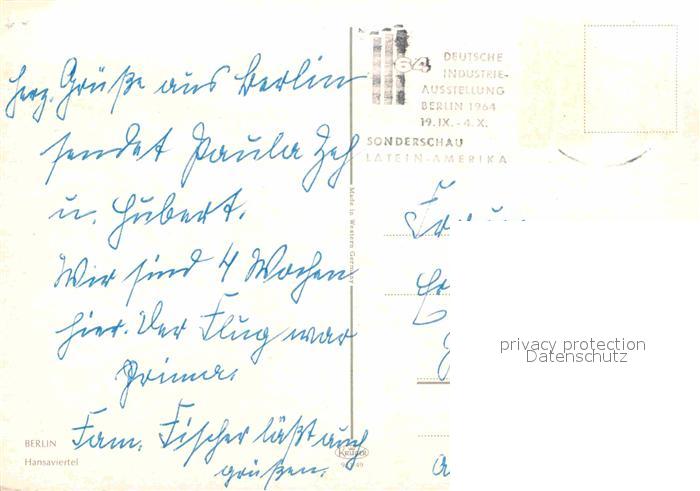 herz. Grüße aus Berlin
sendet Paula Zeh
u. Hubert.
Wir sind 4 Wochen
hier. Der Flug war
prima.
Fam. Fischer läßt auch
grüßen.
BERLIN
Hansaviertel
Made in Western Germany
KRÜGER
64
DEUTSCHE
INDUSTRIE-
AUSSTELLUNG
BERLIN 1964
19. IX. - 4. X.
SONDERSCHAU
LATEIN-AMERIKA
privacy protection
Datenschutz